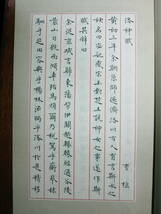 洛神賦
曹植
黃初三年余朝京師還濟洛川古人有言斯水之
神名曰宓妃感宋玉對楚王說神女之事遂作斯
賦其辭曰
余從京域言歸東藩背伊闕越轘轅經通谷陵
景山日既西傾車殆馬煩爾乃稅駕乎蘅皋秣
駟乎芝田容與乎楊林流眄乎洛川於是精移